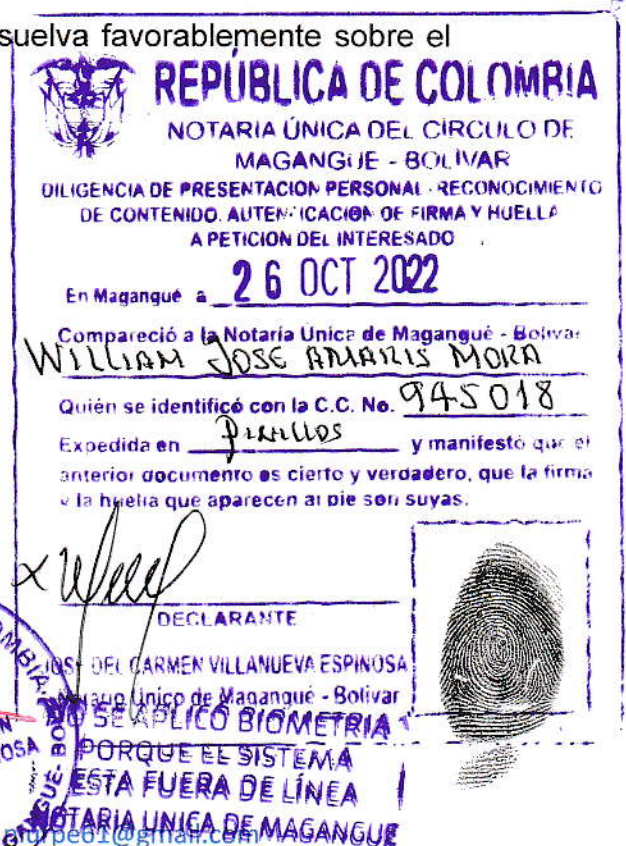 suelva favorablemente sobre el
REPÚBLICA DE COLOMBIA
NOTARIA ÚNICA DEL CIRCULO DE
MAGANGUE - BOLIVAR
DILIGENCIA DE PRESENTACION PERSONAL - RECONOCIMIENTO
DE CONTENIDO. AUTENTICACION DE FIRMA Y HUELLA
A PETICION DEL INTERESADO
En Magangué a 26 OCT 2022
Compareció a la Notaría Unica de Magangué - Bolivar
WILLIAM JOSE AMARIS MORA
Quién se identificó con la C.C. No. 945018
Expedida en Pinillos y manifestó que el
anterior documento es cierto y verdadero, que la firma
y la huella que aparecen al pie son suyas.
DECLARANTE
JOSE DEL CARMEN VILLANUEVA ESPINOSA
Notario Unico de Magangué - Bolivar
NO SE APLICÓ BIOMETRIA
PORQUE EL SISTEMA
ESTA FUERA DE LÍNEA
NOTARIA UNICA DE MAGANGUE
@gmail.com